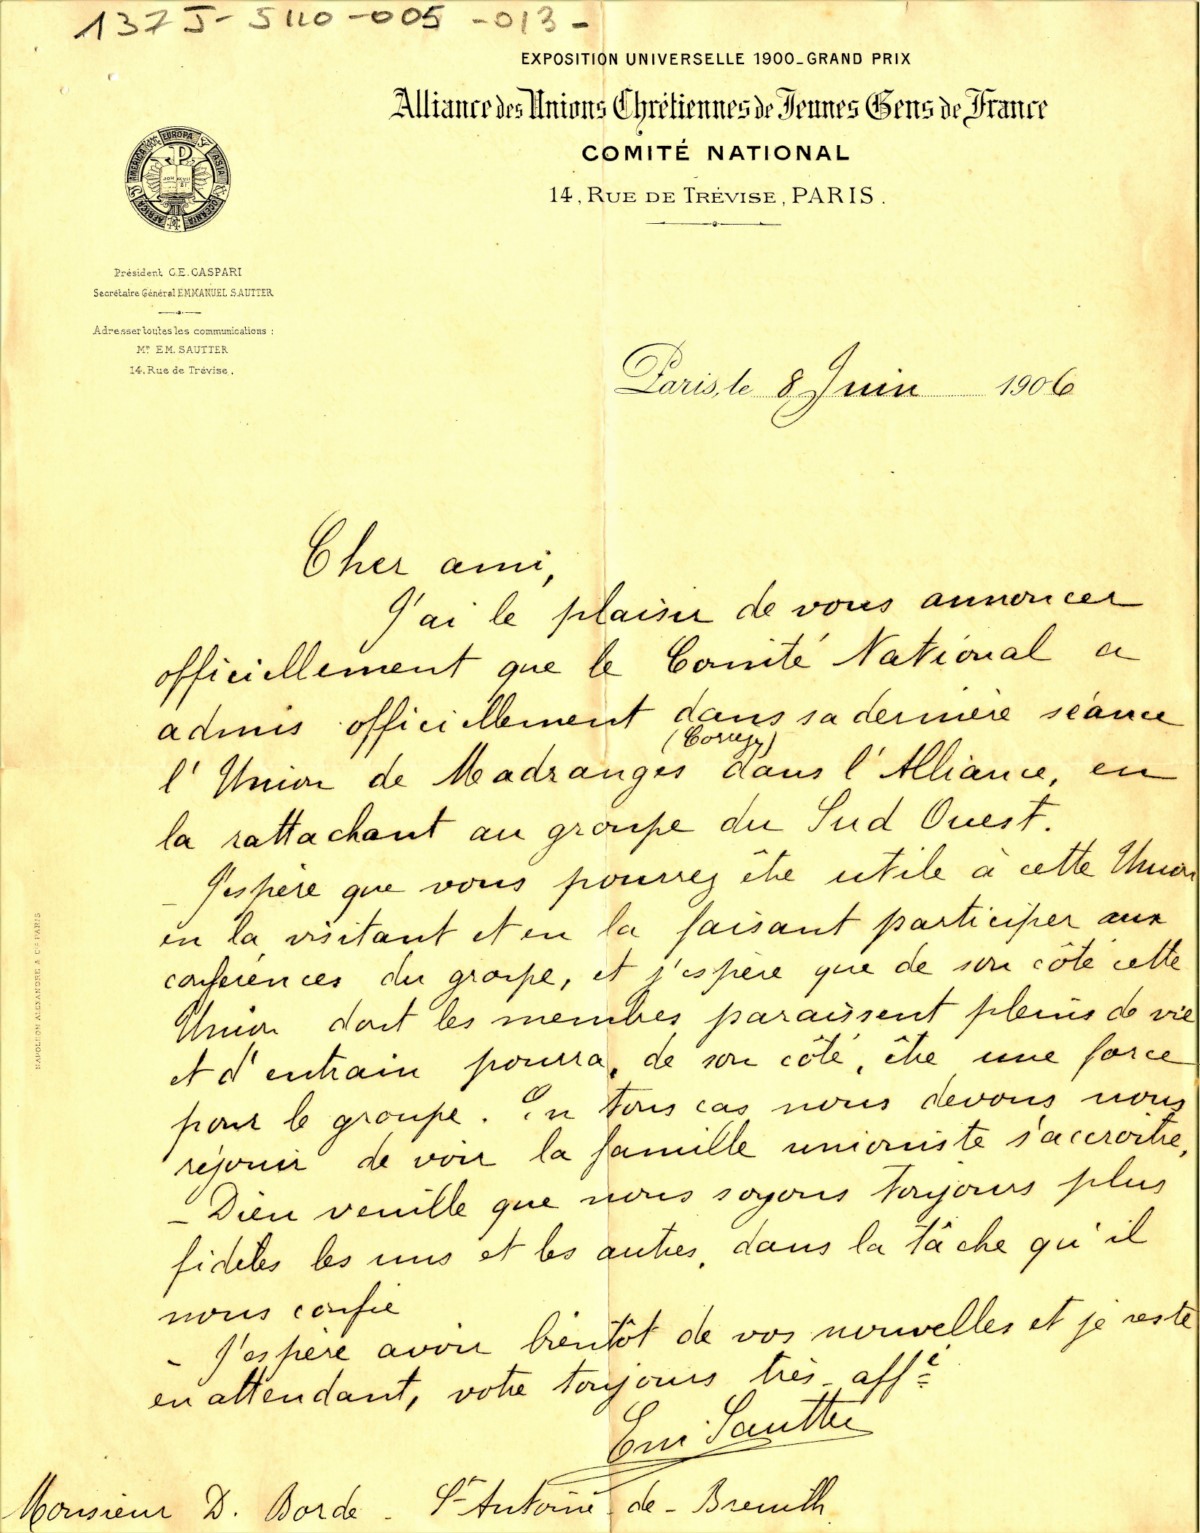 137 J - 5110 - 005 - 013 -
EXPOSITION UNIVERSELLE 1900_GRAND PRIX
Alliance des Unions Chrétiennes de Jeunes Gens de France
COMITÉ NATIONAL
14, RUE DE TRÉVISE, PARIS.
EUROPA
ASIA
OCEANIA
AFRICA
AMERICA
Président C.E. GASPARI
Secrétaire Général EMMANUEL SAUTTER
Adresser toutes les communications :
Mr EM. SAUTTER
14. Rue de Trévise.
Paris, le 8 Juin 1906
Cher ami,
J'ai le plaisir de vous annoncer
officiellement que le Comité National a
admis officiellement dans sa dernière séance
(Corrèze)
l'Union de Madranges dans l'Alliance, en
la rattachant au groupe du Sud Ouest.
_ J'espère que vous pourrez être utile à cette Union
en la visitant et en la faisant participer aux
conférences du groupe, et j'espère que de son côté cette
Union dont les membres paraissent pleins de vie
et d'entrain pourra, de son côté, être une force
pour le groupe. En tous cas nous devons nous
réjouir de voir la famille unioniste s'accroître,
_ Dieu veuille que nous soyons toujours plus
fidèles les uns et les autres, dans la tâche qu'il
nous confie
- J'espère avoir bientôt de vos nouvelles et je reste
en attendant, votre toujours très affé
Em. Sautter
Monsieur D. Borde - St Antoine - de - Breuilh
NAPOLEON ALEXANDRE & Cie PARIS